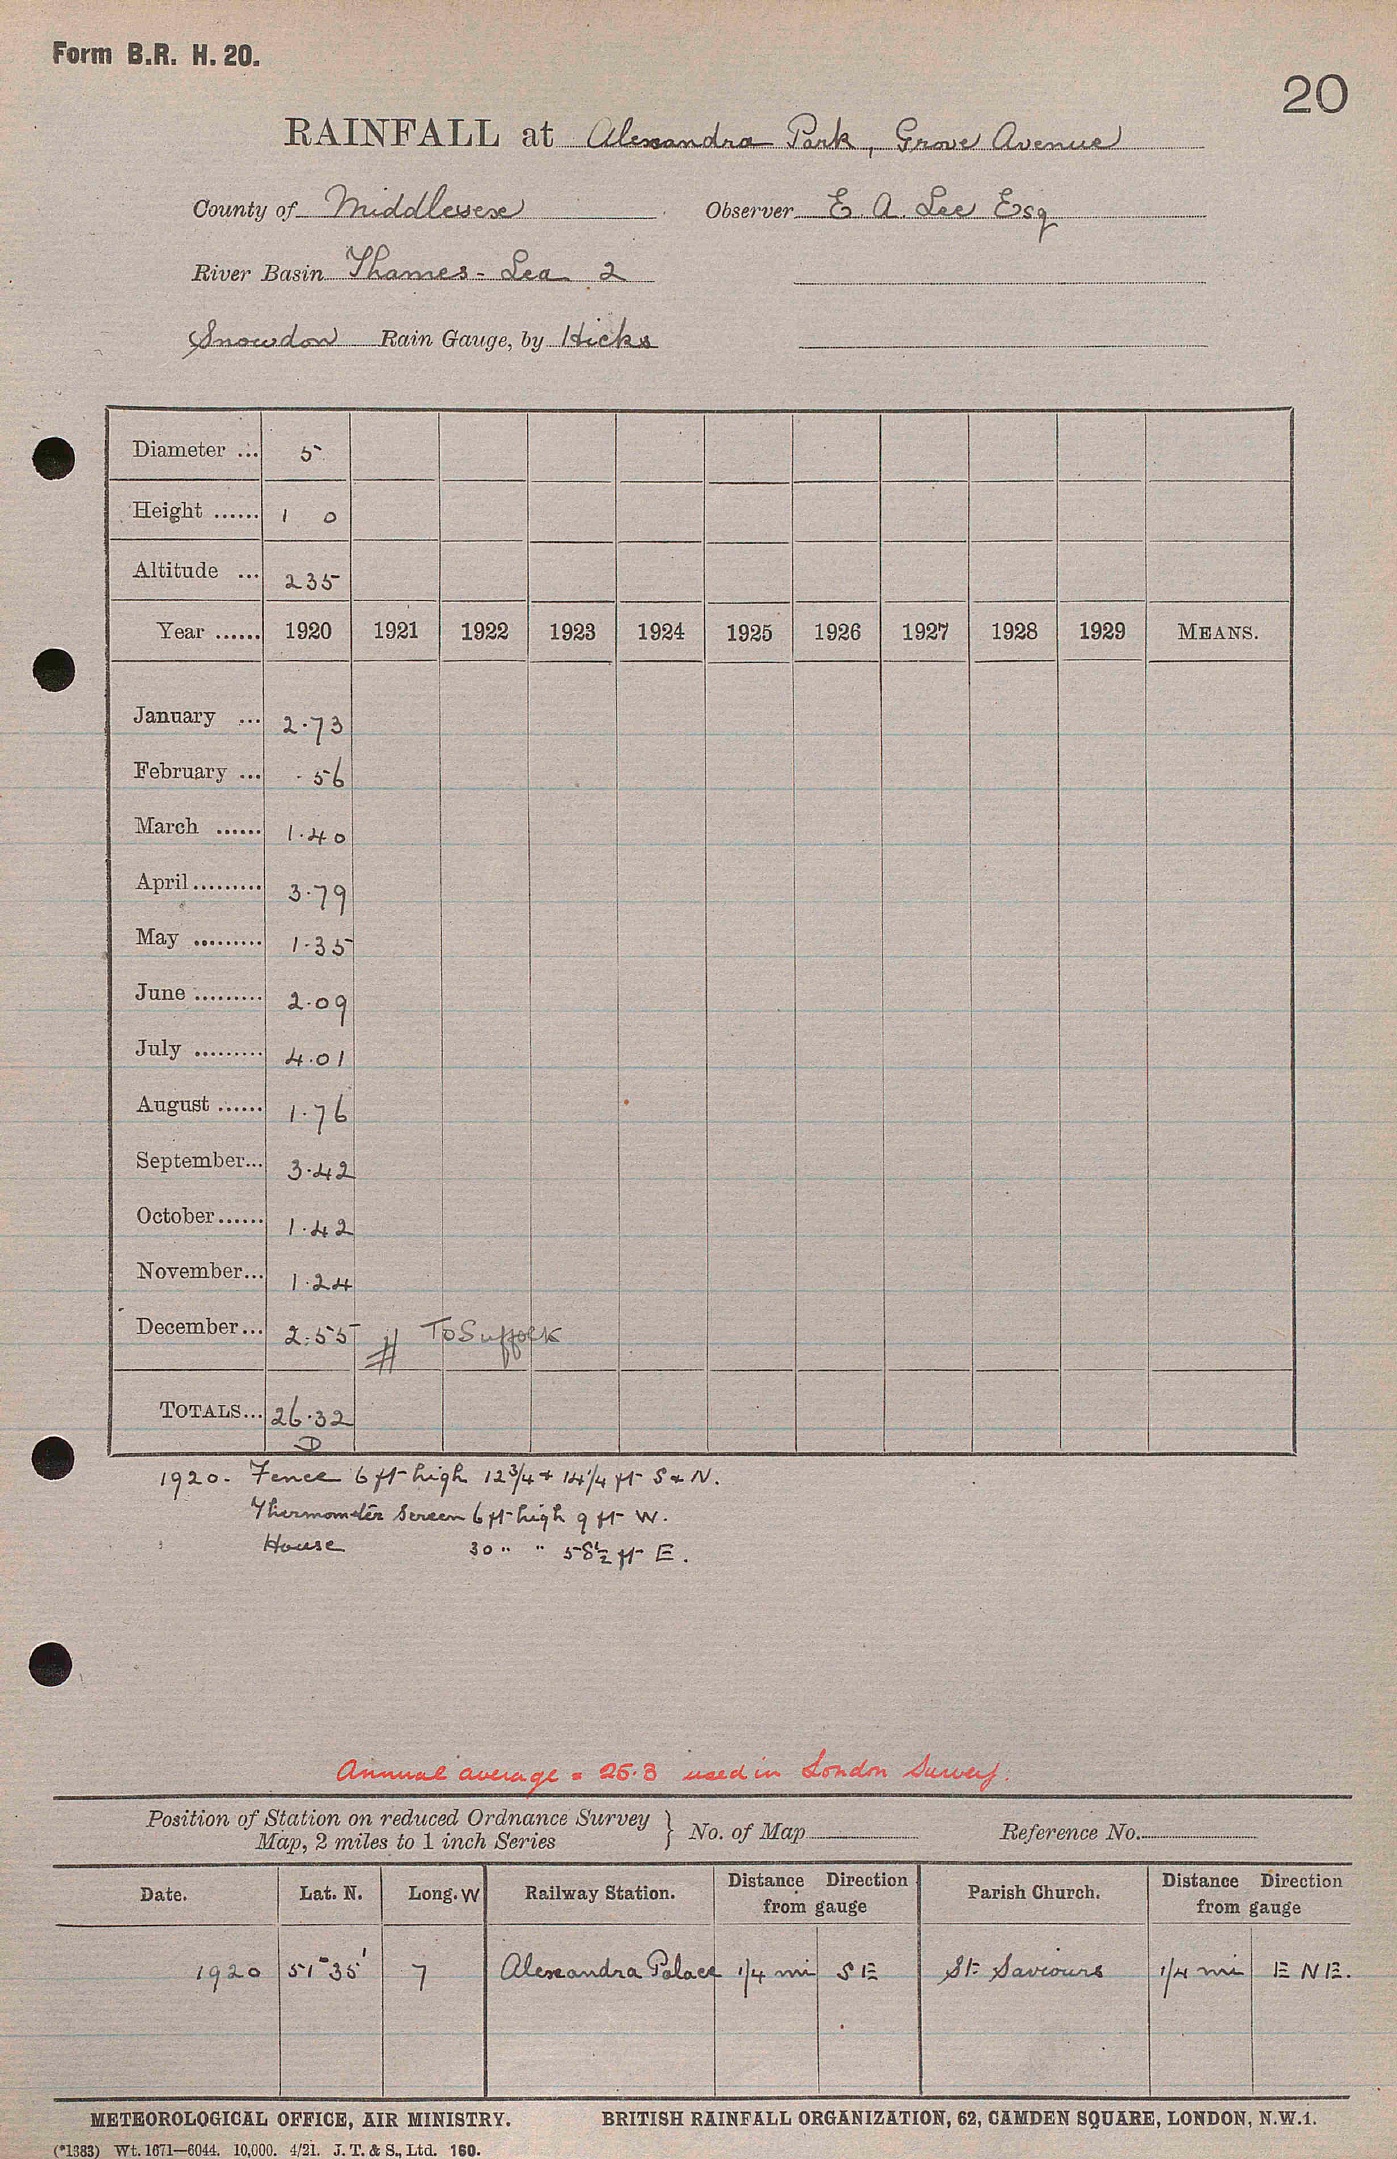 Form B.R. H. 20.
20
RAINFALL at Alexandra Park, Grove Avenue
County of Middlesex Observer E. A. Lee Esq
River Basin Thames - Lea 2
Snowdon Rain Gauge, by Hicks
Diameter ... 5
Height ...... 1 0
Altitude ... 235
Year ...... 1920 1921 1922 1923 1924 1925 1926 1927 1928 1929 MEANS.
January ... 2.73
February ... .56
March ...... 1.40
April ......... 3.79
May ......... 1.35
June ......... 2.09
July ......... 4.01
August ...... 1.76
September... 3.42
October...... 1.42
November... 1.24
December... 2.55 # To Suffolk
TOTALS... 26.32
D
1920. Fence 6 ft high 12 3/4 + 14 1/4 ft S & N.
Thermometer Screen 6 ft high 9 ft W.
House 30 " " 58 1/2 ft E.
Annual average = 25.3 used in London Survey.
Position of Station on reduced Ordnance Survey Map, 2 miles to 1 inch Series } No. of Map Reference No.
Date. Lat. N. Long. W Railway Station. Distance Direction from gauge Parish Church. Distance Direction from gauge
1920 51° 35' 7 Alexandra Palace 1/4 mi SE St. Saviours 1/4 mi E N E.
METEOROLOGICAL OFFICE, AIR MINISTRY. BRITISH RAINFALL ORGANIZATION, 62, CAMDEN SQUARE, LONDON, N.W.1.
(*1383) Wt. 1671—6044. 10,000. 4/21. J. T. & S., Ltd. 160.